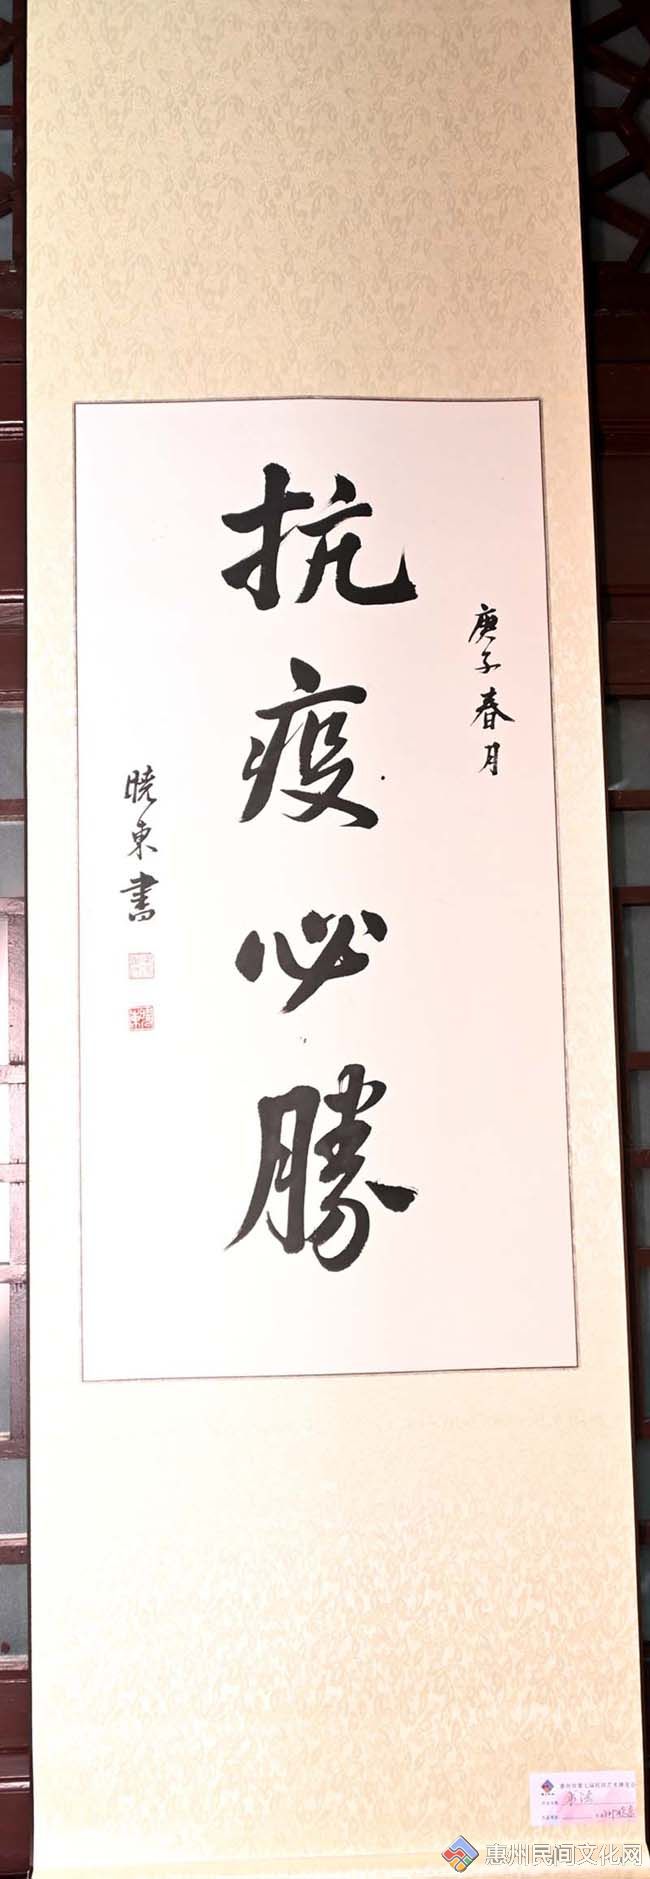 庚子春月
抗疫必勝
曉東書
書法
惠州民间文化网